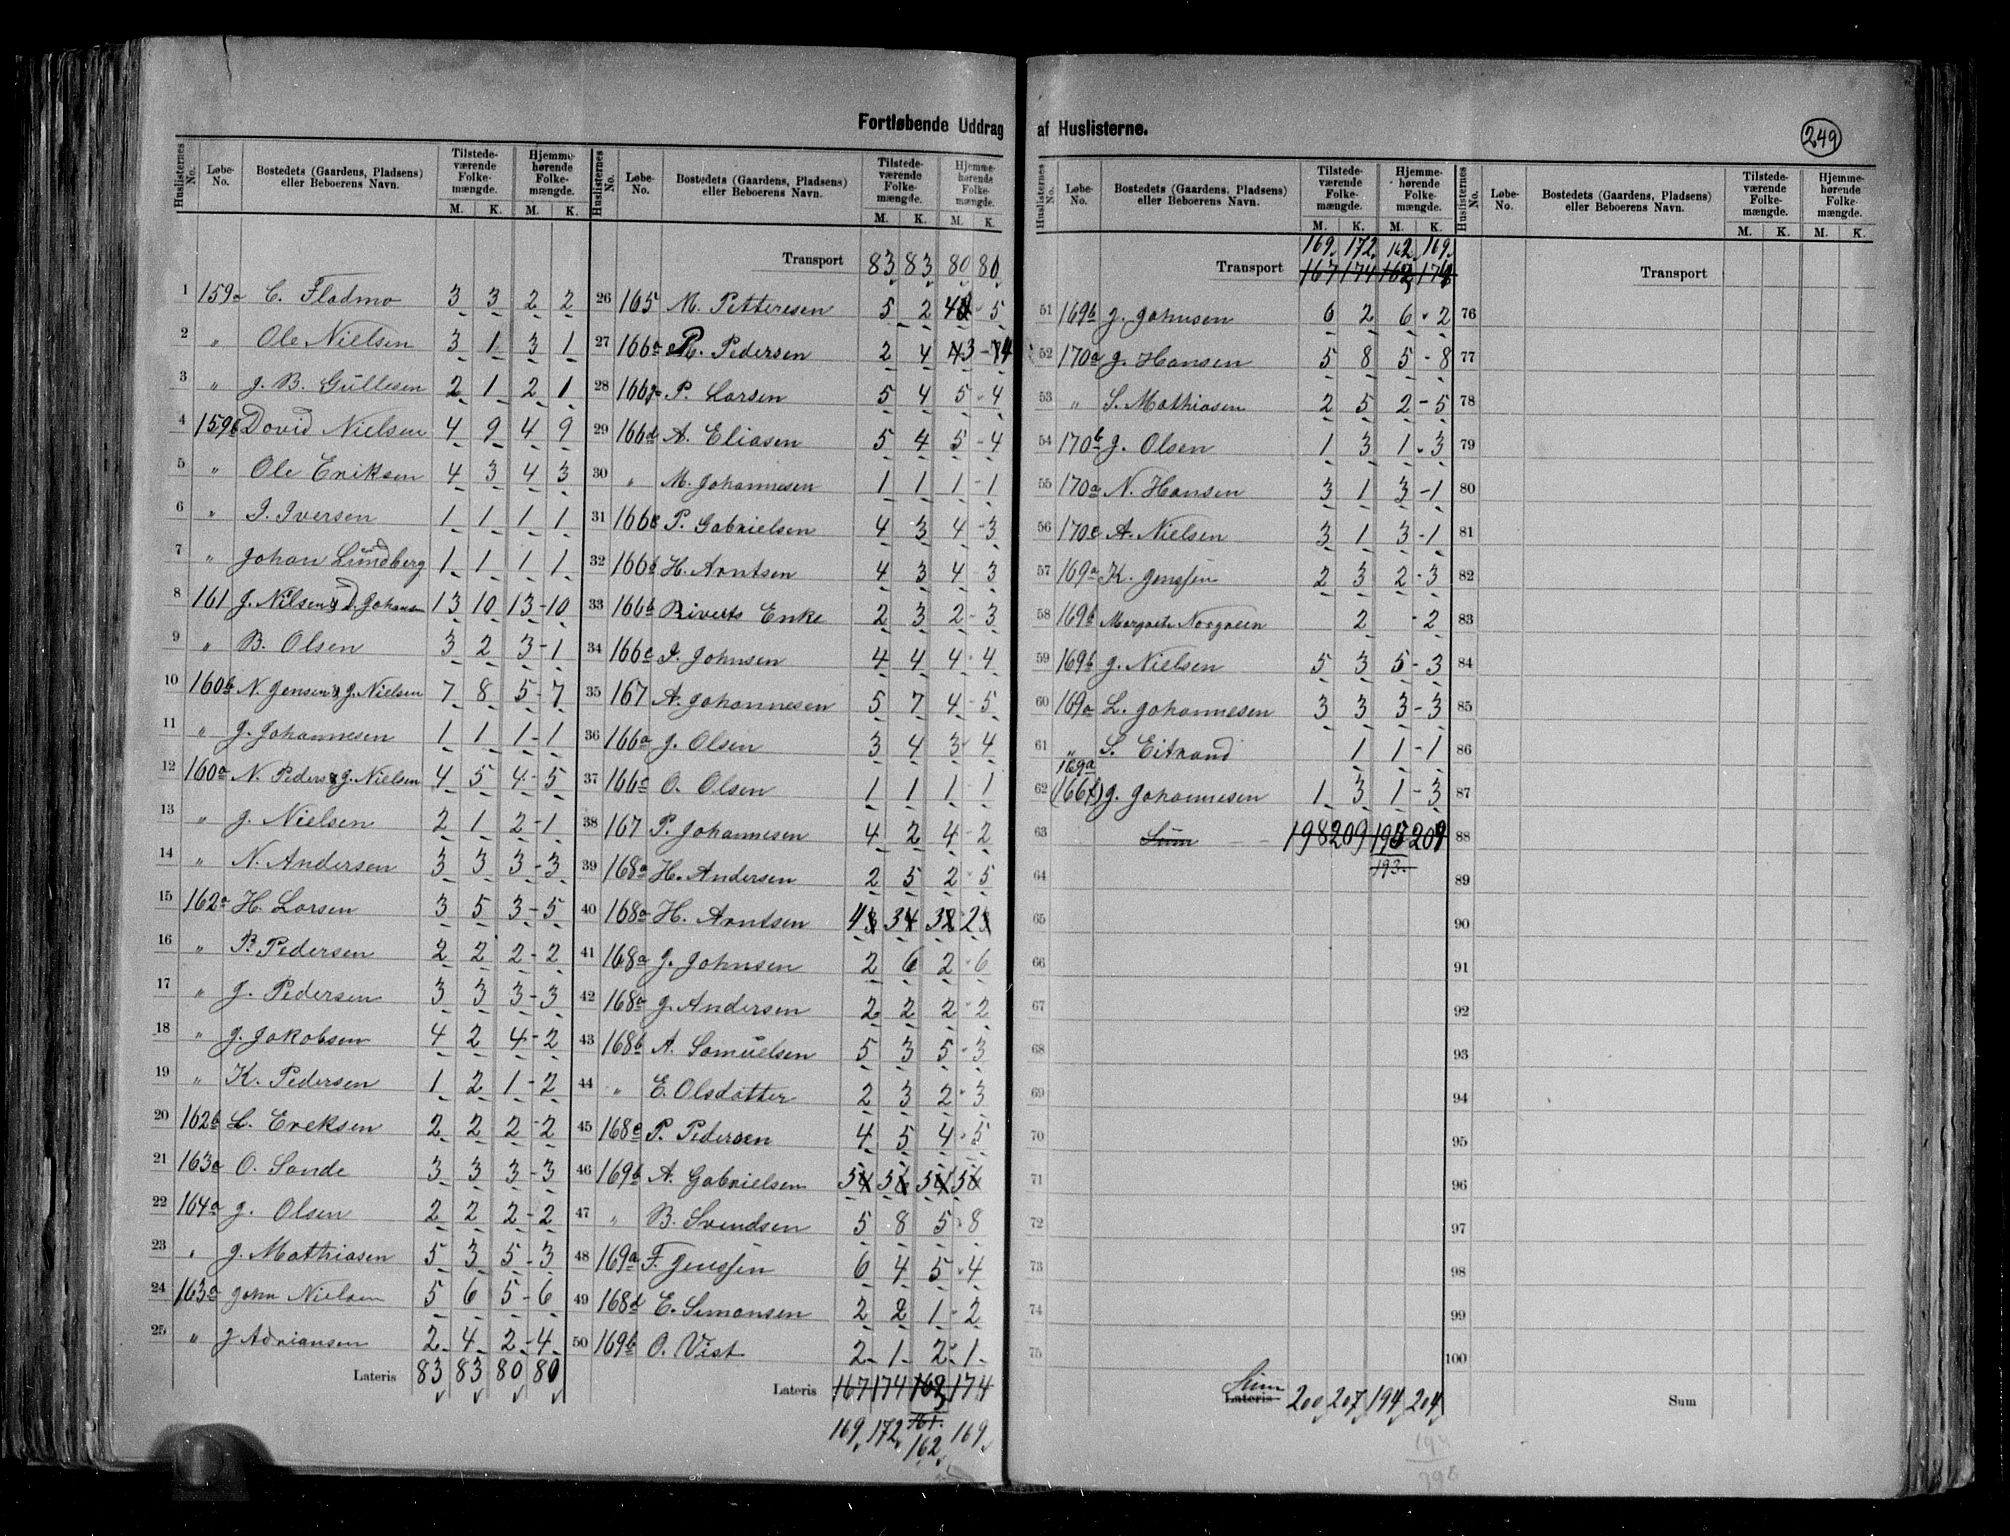 Fortløbende Uddrag af Huslisterne.
249
Huslisternes No. Løbe-No. Bostedets (Gaardens, Pladsens) eller Beboerens Navn. Tilstedeværende Folkemængde. M. K. Hjemmehørende Folkemængde. M. K.
1 159a C. Fladmo 3 3 2 2
2 „ Ole Nielsen 3 1 3 1
3 „ J. B. Gullesen 2 1 2 1
4 159b David Nielsen 4 9 4 9
5 „ Ole Eriksen 4 3 4 3
6 „ I. Iversen 1 1 1 1
7 „ Johan Lundberg 1 1 1 1
8 161 J. Nilsen & D. Johansen 13 10 13-10
9 „ B. Olsen 3 2 3-1
10 160b N. Jensen & J. Nielsen 7 8 5-7
11 „ J. Johannesen 1 1 1-1
12 160a N. Peders & J. Nielsen 4 5 4-5
13 „ J. Nielsen 2 1 2-1
14 „ N. Andersen 3 3 3-3
15 162a H. Larsen 3 5 3-5
16 „ P. Pedersen 2 2 2-2
17 „ J. Pedersen 3 3 3-3
18 „ J. Jakobsen 4 2 4-2
19 „ K. Pedersen 1 2 1-2
20 162b L. Ereksen 2 2 2-2
21 163a O. Sande 3 3 3-3
22 164a J. Olsen 2 2 2-2
23 „ J. Mathiasen 5 3 5-3
24 163a John Nielsen 5 6 5-6
25 „ J Adriansen 2 4 2-4
Lateris 83 83 80 80
Huslisternes No. Løbe-No. Bostedets (Gaardens, Pladsens) eller Beboerens Navn. Tilstedeværende Folkemængde. M. K. Hjemmehørende Folkemængde. M. K.
Transport 83 83 80 80
26 165 M. Petteresen 5 2 4 - 5
27 166a P. Pedersen 2 4 3 - 4
28 166 P. Larsen 5 4 5 - 4
29 166d A. Eliasen 5 4 5 - 4
30 „ M. Johannesen 1 1 1 - 1
31 166c P. Gabrielsen 4 3 4 - 3
32 166b H. Arntsen 4 3 4 - 3
33 166b Riverts Enke 2 3 2 - 3
34 166c I. Johnsen 4 4 4 - 4
35 167 A. Johannesen 5 7 4 - 5
36 166a J. Olsen 3 4 3 - 4
37 166c O. Olsen 1 1 1 - 1
38 167 P. Johannesen 4 2 4 - 2
39 168a H. Andersen 2 5 2 - 5
40 168a H. Arntsen 4 3 3 2
41 168a J. Johnsen 2 6 2 - 6
42 168a J. Andersen 2 2 2 - 2
43 168b A. Samuelsen 5 3 5 - 3
44 „ E. Olsdatter 2 3 2 - 3
45 168c P. Pedersen 4 5 4 - 5
46 169b A. Gabrielsen 5 5 5 5
47 „ B. Svendsen 5 8 5 - 8
48 169a F. Jenssen 6 4 5 - 4
49 168d E. Simonsen 2 2 1 - 2
50 169b O. Vist 2 1 2 - 1
Lateris 167 174 162 174
169 172 161. 162 169
Huslisternes No. Løbe-No. Bostedets (Gaardens, Pladsens) eller Beboerens Navn. Tilstedeværende Folkemængde. M. K. Hjemmehørende Folkemængde. M. K.
169 172 162 169
Transport 167 174 162 174
51 169b J. Johnsen 6 2 6 - 2
52 170a J. Hansen 5 8 5 - 8
53 „ S. Mathiasen 2 5 2 - 5
54 170b J. Olsen 1 3 1 - 3
55 170a N. Hansen 3 1 3 - 1
56 170c A. Nielsen 3 1 3 - 1
57 169a K. Jenssen 2 3 2 - 3
58 169b Margrete Norgreen 2 - 2
59 169b J. Nielsen 5 3 5 - 3
60 169a L. Johannesen 3 3 3 - 3
61 „ S. Eitrand 1 1 - 1
169a
62 (166f) J. Johannesen 1 3 1 - 3
63 Sum 198 209 195 209
193.
64
65
66
67
68
69
70
71
72
73
74
75
Sum
Lateris 200 207 194 204
194
398
Huslisternes No. Løbe-No. Bostedets (Gaardens, Pladsens) eller Beboerens Navn. Tilstedeværende Folkemængde. M. K. Hjemmehørende Folkemængde. M. K.
Transport
76
77
78
79
80
81
82
83
84
85
86
87
88
89
90
91
92
93
94
95
96
97
98
99
100
Sum